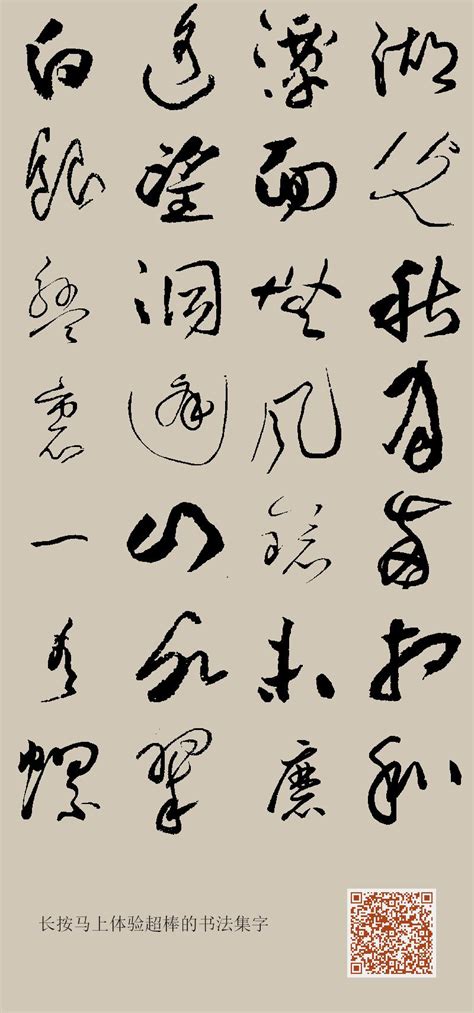 湖光秋月兩相和
潭面無風鏡未磨
遙望洞庭山水翠
白銀盤裏一青螺
长按马上体验超棒的书法集字